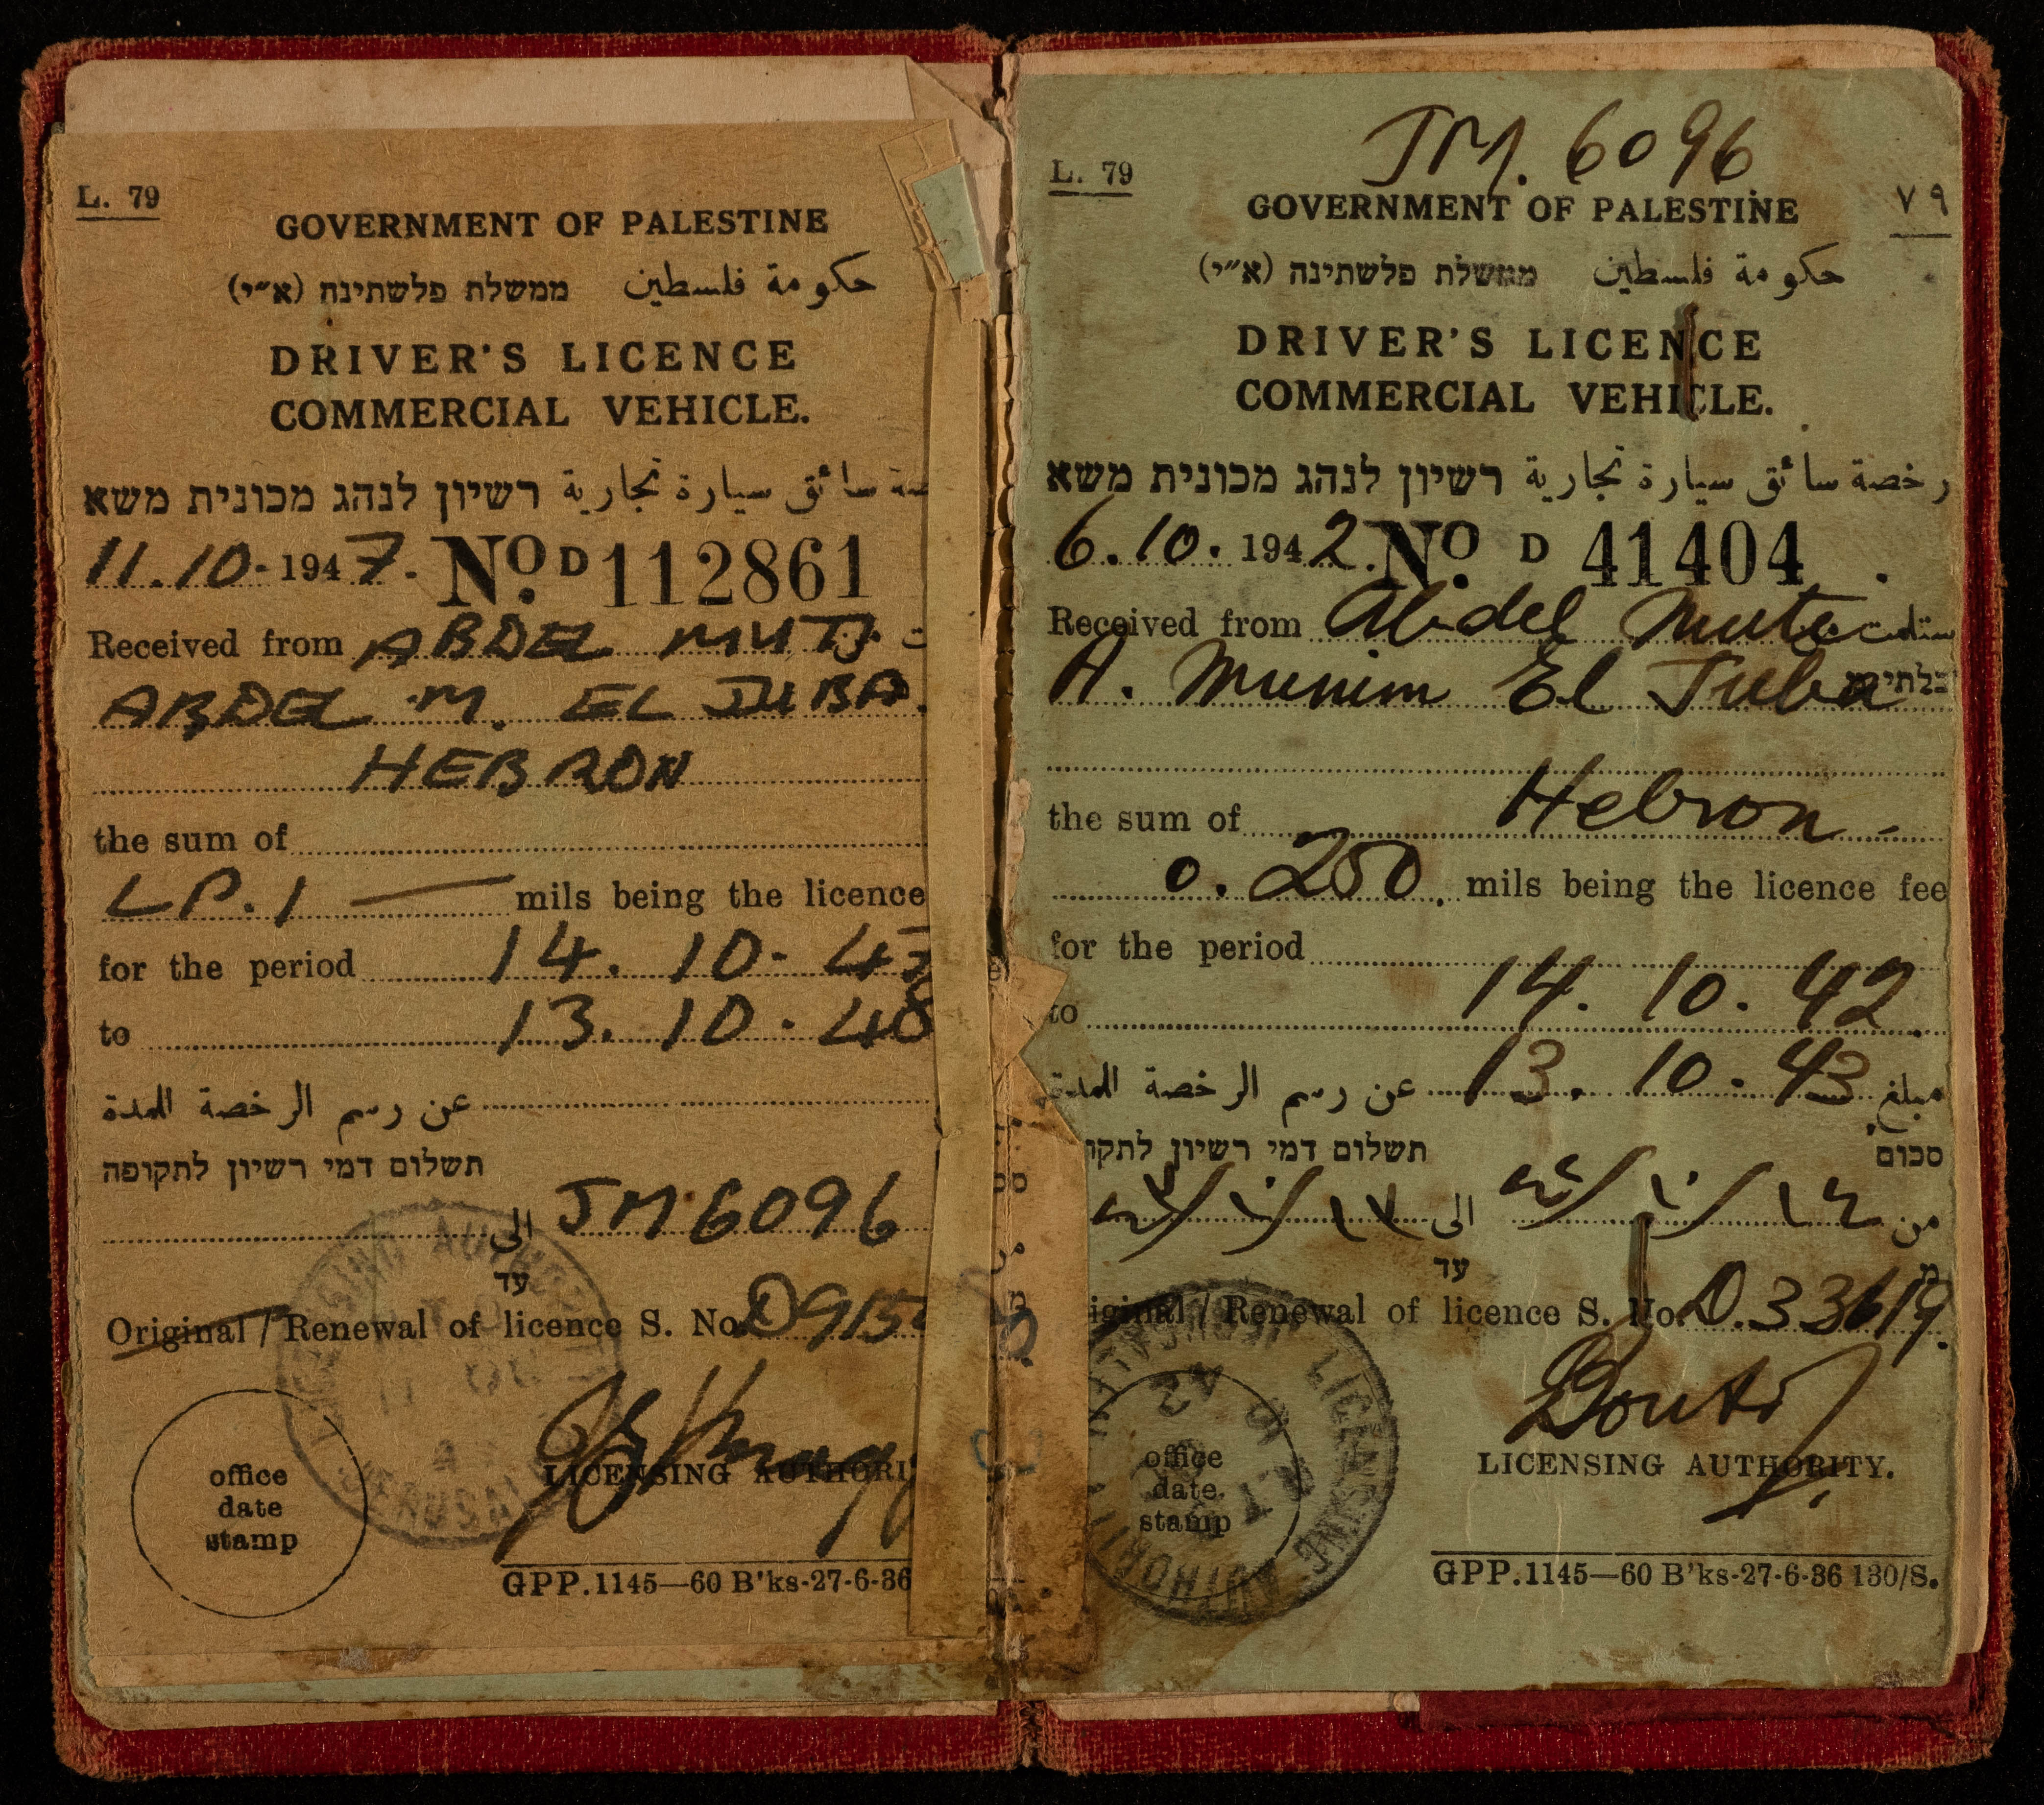 L. 79
GOVERNMENT OF PALESTINE
حكومة فلسطين ממשלת פלשתינה (א״י)
DRIVER'S LICENCE
COMMERCIAL VEHICLE.
سائق سيارة تجارية רשיון לנהג מכונית משא
11.10.1947. No. D 112861
Received from ABDEL MUTI
ABDEL M. EL JUBA.
HEBRON
the sum of
LP. 1 — mils being the licence
for the period 14. 10. 47
to 13. 10. 48
عن رسم الرخصة للمدة
תשלום דמי רשיון לתקופה
الى JM 6096
עד
Original / Renewal of licence S. No. D 915
LICENSING AUTHORI
office
date
stamp
GPP.1145—60 B'ks-27-6-36
JM. 6096
L. 79
٧٩
GOVERNMENT OF PALESTINE
حكومة فلسطين ממשלת פלשתינה (א״י)
DRIVER'S LICENCE
COMMERCIAL VEHICLE.
رخصة سائق سيارة تجارية רשיון לנהג מכונית משא
6.10.1942. No. D 41404
Received from Abdel Mute
A. Munim El Juba
the sum of Hebron -
0.250. mils being the licence fee
for the period
to 14. 10. 42.
مبلغ 13. 10. 43 عن رسم الرخصة للمدة
סכום תשלום דמי רשיון לתקו
من ١٤/١٠/٤٢ الى ١٣/١٠/٤٣
מ עד
iginal / Renewal of licence S. No. D. 33619.
LICENSING AUTHORITY.
office
date
stamp
LICENSING AUTHORITY
GPP.1145—60 B'ks-27-6-36 130/S.